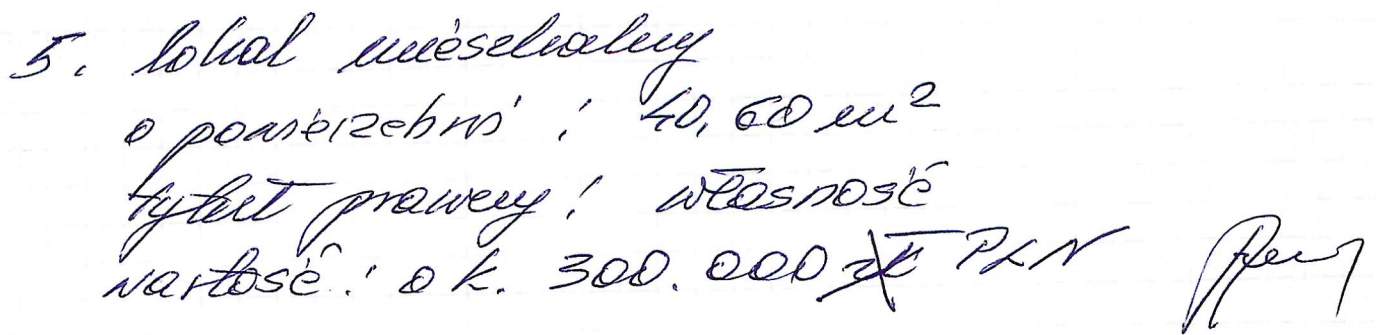 5. lokal mieszkalny
o powierzchni : 40,60 m²
tytuł prawny : własność
wartość : ok. 300.000 zł PLN